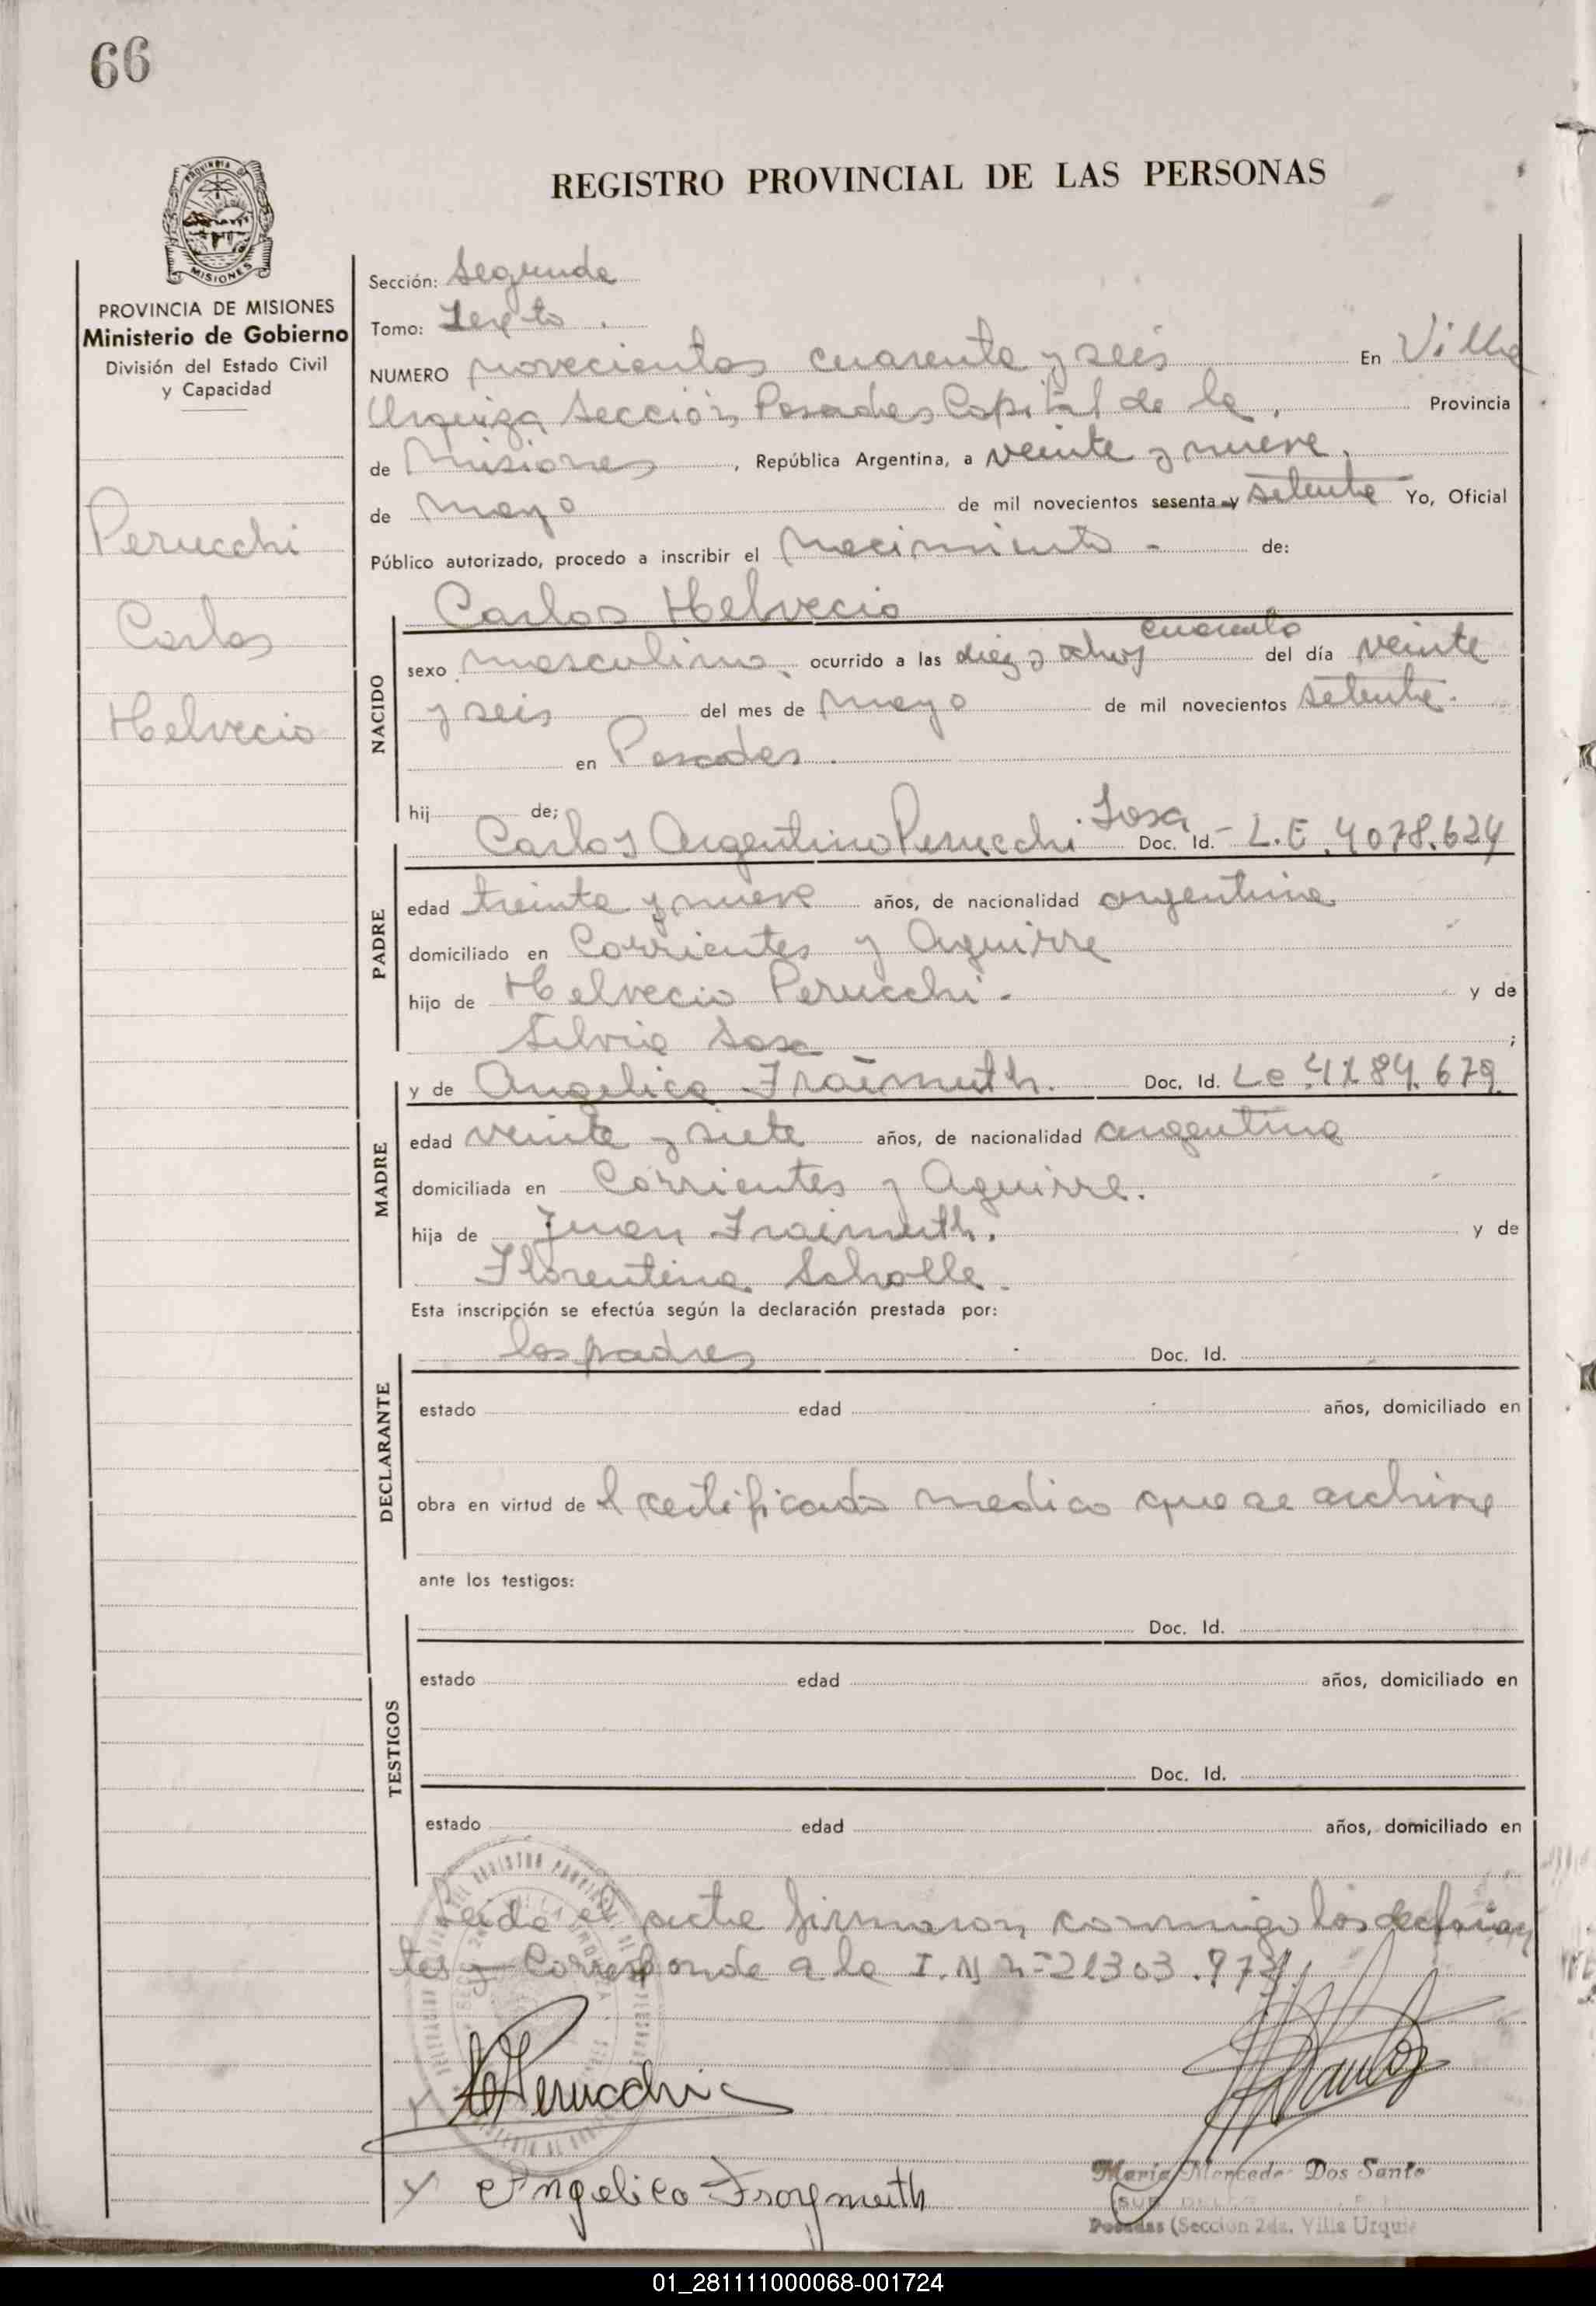 66
REGISTRO PROVINCIAL DE LAS PERSONAS
MISIONES
PROVINCIA DE MISIONES
Ministerio de Gobierno
División del Estado Civil
y Capacidad
Perucchi
Carlos
Helvecio
Sección: Segunda
Tomo: Sexto .
NUMERO novecientos cuarenta y seis En Villa
Urquiza Sección Posadas Capital de la, Provincia
de Misiones, República Argentina, a veinte y nueve,
de mayo de mil novecientos sesenta y setenta Yo, Oficial
Público autorizado, procedo a inscribir el nacimiento - de:
Carlos Helvecio
NACIDO
cuarenta
sexo masculino, ocurrido a las diez y ocho y del día veinte
y seis del mes de mayo de mil novecientos setenta.
en Posadas.
hij de;
Sosa
Carlos Argentino Perucchi Doc. Id. - L.E. 4078.624
PADRE
edad treinta y nueve años, de nacionalidad argentina
domiciliado en Corrientes y Aguirre
hijo de Helvecio Perucchi. y de
Silvia Sosa ;
y de Angelica Fraimuth. Doc. Id. Lc. 4184.679
MADRE
edad veinte y siete años, de nacionalidad argentina
domiciliada en Corrientes y Aguirre.
hija de Juan Fraimuth. y de
Florentina Scholle.
Esta inscripción se efectúa según la declaración prestada por:
los padres Doc. Id.
DECLARANTE
estado edad años, domiciliado en
obra en virtud de l certificado medico que se archiva
ante los testigos:
Doc. Id.
TESTIGOS
estado edad años, domiciliado en
Doc. Id.
estado edad años, domiciliado en
Leida el acta firmaron conmigo los declaran
tes y Corresponde a la I.N n= 21303.973
Perucchi
Angelica Fraymuth
Maria Mercede Dos Santo
Posadas (Sección 2da. Villa Urquiz
01_281111000068-001724